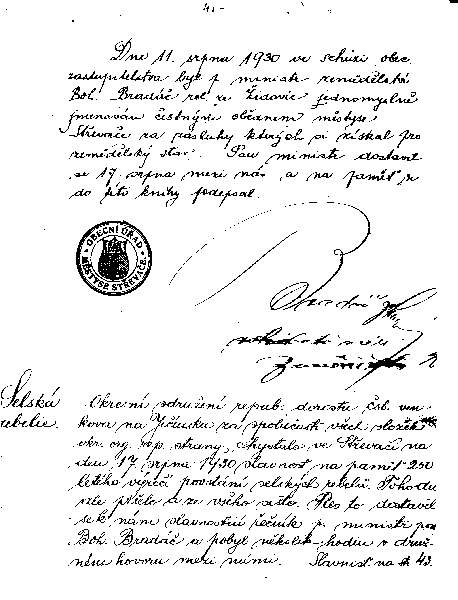 41.-
Dne 11. srpna 1930 ve schůzi obec.
zastupitelstva byl p. ministr zemědělství
Boh. Bradáč rol. ze Židovic jednomyslně
jmenován čestným občanem městyse
Střevače za zásluhy kterých si získal pro
zemědělský stav. Pan ministr dostavil
se 17. srpna mezi nás, a na paměť se
do této knihy podepsal.
OBECNÍ ÚŘAD
MĚSTYSE STŘEVAČE.
Bradáč
Selská
rebelie.
Okresní sdružení repub. dorostu čsl. ven-
kova na Jičínsku za společnosti všech složek
okr. org. rep. strany, chystalo ve Střevači na
den 17. srpna 1930 slavnost na paměť 250
letého výročí povstání selských rebelů. Toho dne
pršelo a ze všeho sešlo. Přes to dostavil
se k nám slavnostní řečník p. ministr
Boh. Bradáč a pobyl několik hodin v druž-
ném hovoru mezi námi. Slavnost na str. 43.